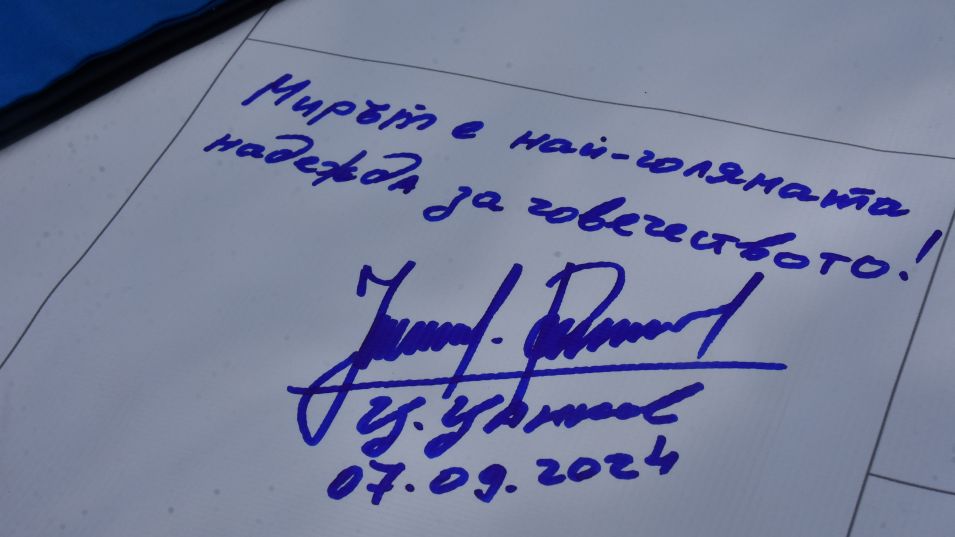 Мирът е най-голямата
надежда за човечеството!
07.09.2024